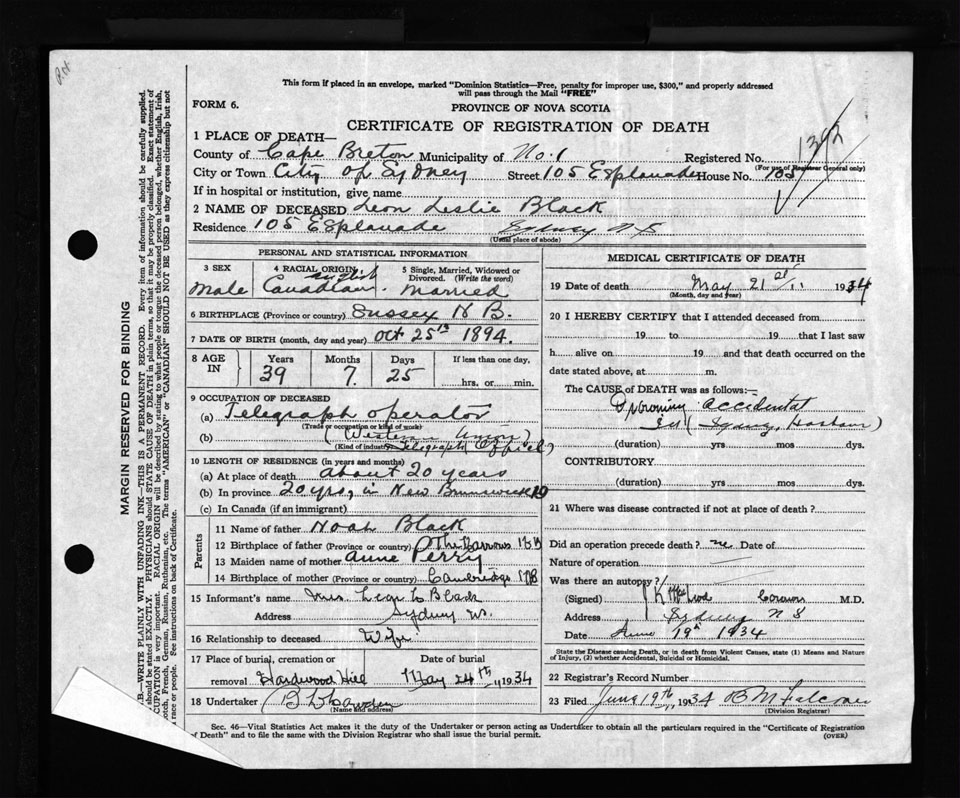 This form if placed in an envelope, marked "Dominion Statistics—Free, penalty for improper use, $300," and properly addressed
will pass through the Mail "FREE"
FORM 6.
PROVINCE OF NOVA SCOTIA
CERTIFICATE OF REGISTRATION OF DEATH
1 PLACE OF DEATH—
County of Cape Breton Municipality of No. 1 Registered No.
(For use of Registrar General only)
City or Town City of Sydney Street 105 Esplanade House No. 105
If in hospital or institution, give name
2 NAME OF DECEASED Leon Leslie Black
Residence 105 Esplanade Sydney N S
(Usual place of abode)
PERSONAL AND STATISTICAL INFORMATION
3 SEX 4 RACIAL ORIGIN 5 Single, Married, Widowed or Divorced. (Write the word)
Male English Canadian. Married
6 BIRTHPLACE (Province or country) Sussex N B.
7 DATE OF BIRTH (month, day and year) Oct 25th 1894.
8 AGE IN Years Months Days If less than one day,
39 7. 25 hrs. or min.
9 OCCUPATION OF DECEASED
(a) Telegraph operator
(Trade or occupation or kind of work)
(b) (Western Union
(Kind of industry) Telegraph Office)
10 LENGTH OF RESIDENCE (in years and months)
(a) At place of death about 20 years
(b) In province 20 yrs, in New Brunswick 19
(c) In Canada (if an immigrant)
Parents
11 Name of father Noah Black
12 Birthplace of father (Province or country) The Barrows N B
13 Maiden name of mother Anne Perry
14 Birthplace of mother (Province or country) Cambridge NB
15 Informant's name Mrs. Leon L Black
Address Sydney NS.
16 Relationship to deceased Wife
17 Place of burial, cremation or removal Date of burial
Hardwood Hill May 24th 1934
18 Undertaker
(Name and address)
MEDICAL CERTIFICATE OF DEATH
19 Date of death May 21 1934
(Month, day and year)
20 I HEREBY CERTIFY that I attended deceased from
19 to 19 that I last saw
h alive on 19 and that death occurred on the
date stated above, at m.
The CAUSE OF DEATH was as follows:—
Drowning accidental
in (Sydney, Harbour)
(duration) yrs mos dys.
CONTRIBUTORY
(duration) yrs mos dys.
21 Where was disease contracted if not at place of death?
Did an operation precede death? no Date of
Nature of operation
Was there an autopsy?
(Signed) Coroner M.D.
Address Sydney N S
Date June 19th 1934
State the Disease causing Death, or in death from Violent Causes, state (1) Means and Nature
of Injury, (2) whether Accidental, Suicidal or Homicidal.
22 Registrar's Record Number
23 Filed June 19th 1934 B M Falconer
(Division Registrar)
Sec. 46—Vital Statistics Act makes it the duty of the Undertaker or person acting as Undertaker to obtain all the particulars required in the "Certificate of Registration
of Death" and to file the same with the Division Registrar who shall issue the burial permit.
(OVER)
MARGIN RESERVED FOR BINDING
N.B.—WRITE PLAINLY WITH UNFADING INK—THIS IS A PERMANENT RECORD. Every item of information should be carefully supplied.
should be stated EXACTLY. PHYSICIANS should state CAUSE OF DEATH in plain terms, so that it may be properly classified. Exact statement of
OCCUPATION is very important. RACIAL ORIGIN will be described by stating to what people or tongue the deceased person belonged, whether English, Irish,
Scotch, French, German, Russian, Ruthenian, etc. The terms "AMERICAN" or "CANADIAN" SHOULD NOT BE USED as they express citizenship but not
race or people. See instructions on back of Certificate.